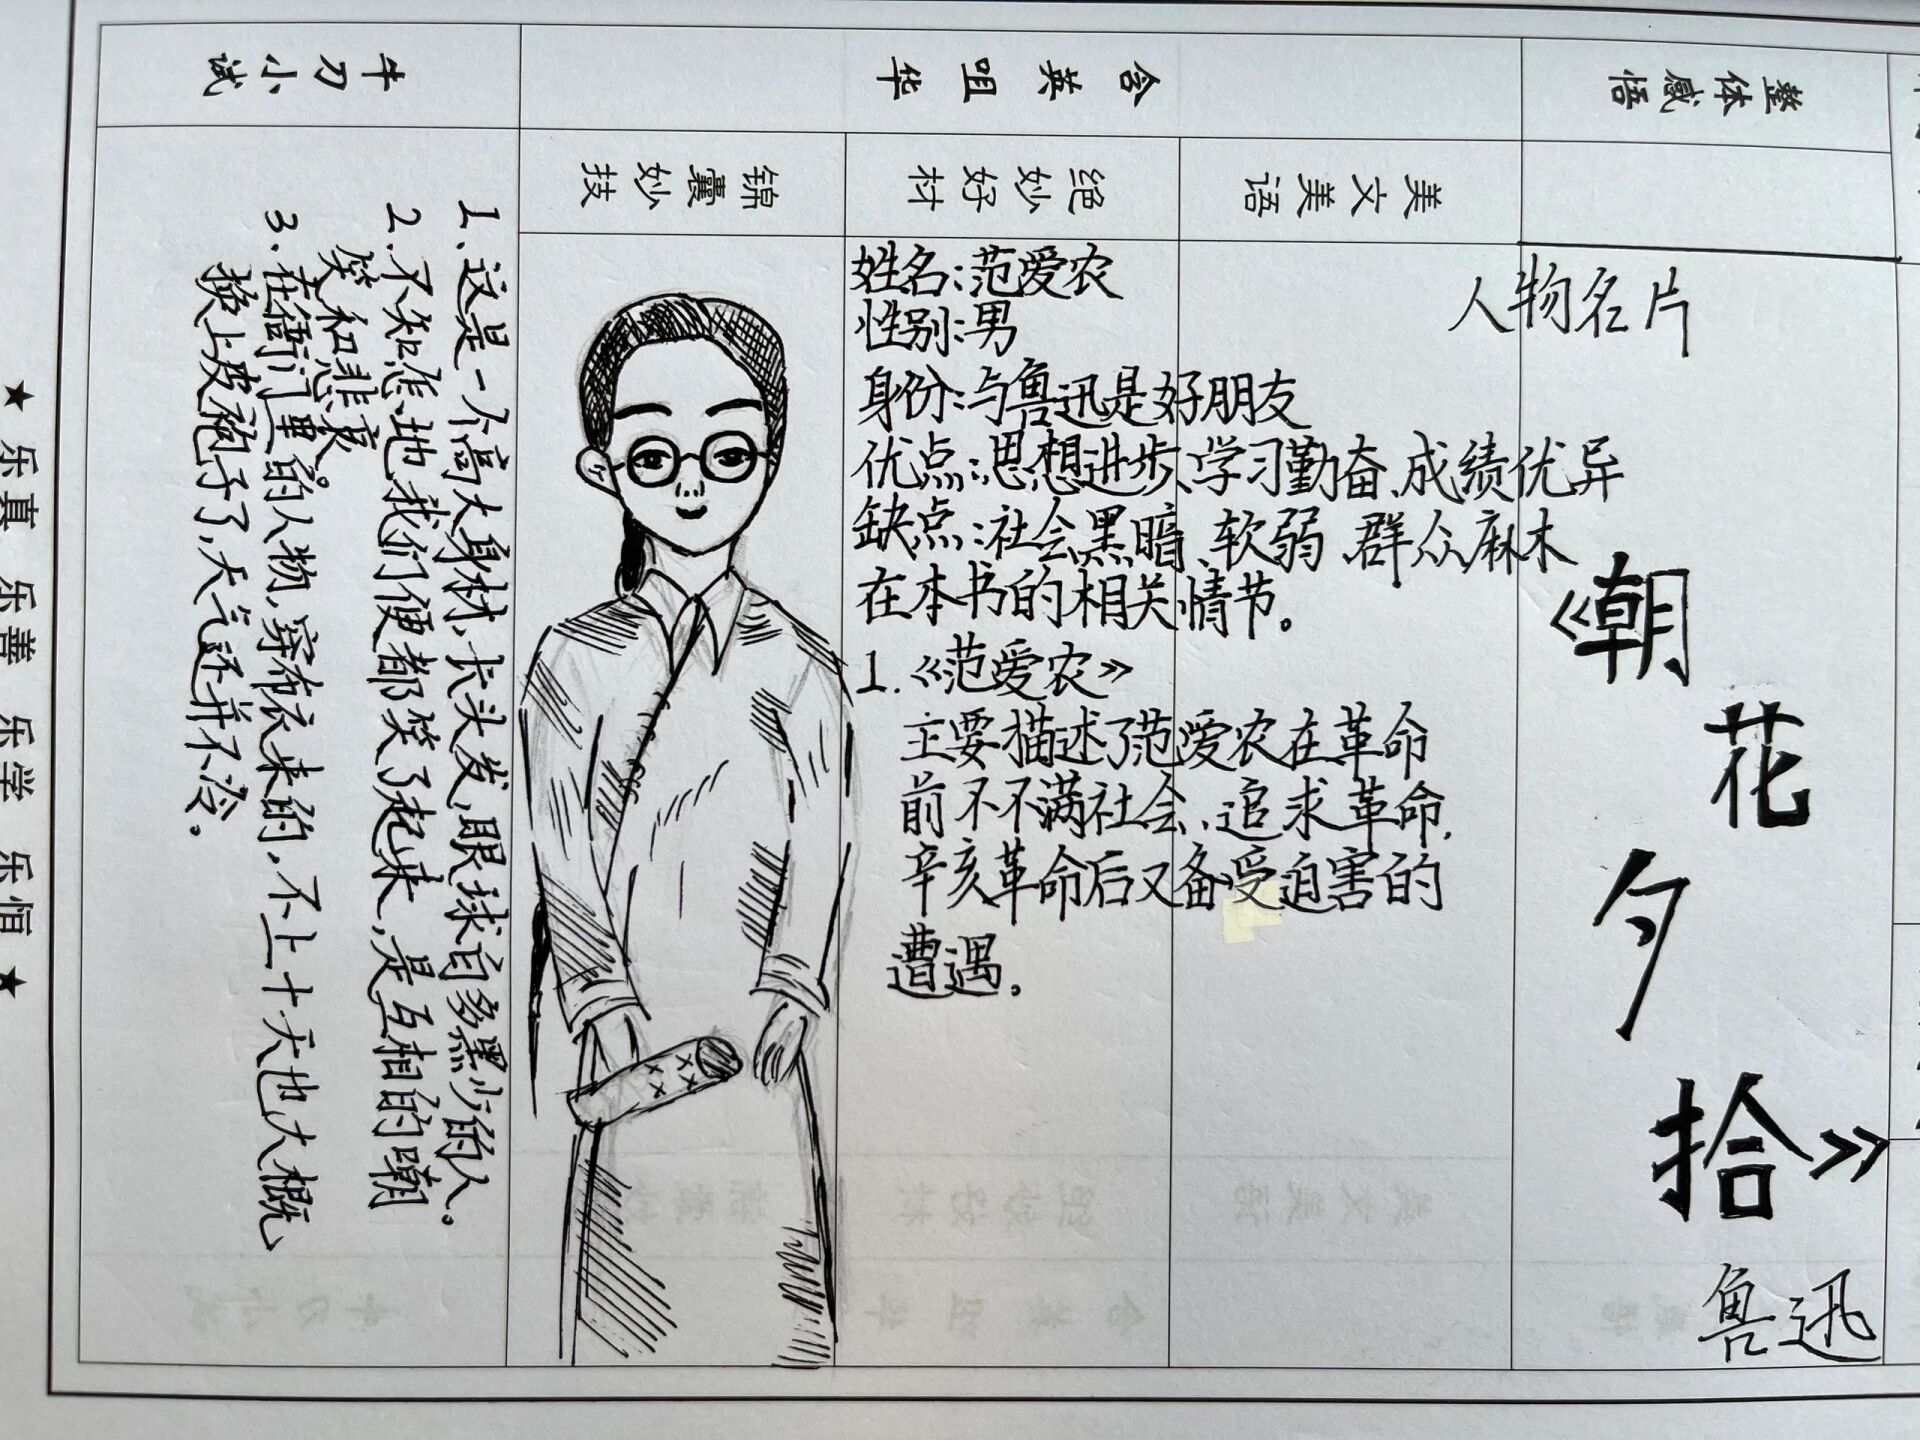 整体感悟
含英咀华
牛刀小试
美文美语
绝妙好村
锦囊妙技
人物名片
《朝花夕拾》
鲁迅
姓名:范爱农
性别:男
身份:与鲁迅是好朋友
优点:思想进步、学习勤奋、成绩优异
缺点:社会黑暗、软弱、群众麻木
在本书的相关情节。
1.《范爱农》
主要描述了范爱农在革命
前不不满社会、追求革命,
辛亥革命后又备受迫害的
遭遇。
1、这是一个高大身材,长头发,眼球白多黑少的人。
2、不知怎地我们便都笑了起来,是互相的嘲
笑和悲哀。
3、在衙门里的人物,穿布衣来的,不上十天也大概
换上皮袍子了,天气还并不冷。
★ 乐真 乐善 乐学 乐恒 ★